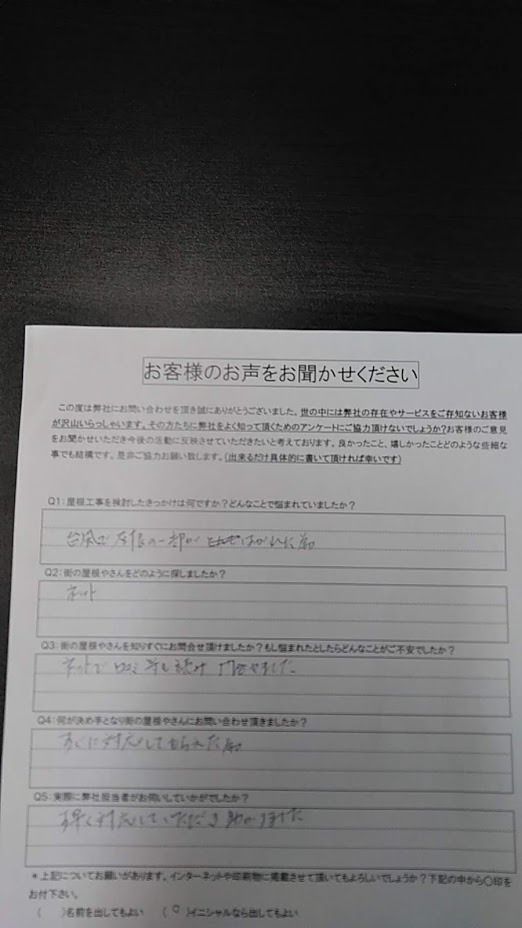 お客様のお声をお聞かせください
この度は弊社にお問い合わせを頂き誠にありがとうございました。世の中には弊社の存在やサービスをご存知ないお客様
が沢山いらっしゃいます。その方たちに弊社をよく知って頂くためのアンケートにご協力頂けないでしょうか?お客様のご意見
をお聞かせいただき今後の活動に反映させていただきたいと考えております。良かったこと、嬉しかったことどのような些細な
事でも結構です。是非ご協力お願い致します。(出来るだけ具体的に書いて頂ければ幸いです)
Q1:屋根工事を検討したきっかけは何ですか?どんなことで悩まれていましたか?
台風で屋根の一部が はがれた為
Q2:街の屋根やさんをどのように探しましたか?
ネット
Q3:街の屋根やさんを知りすぐにお問合せ頂けましたか?もし悩まれたとしたらどんなことがご不安でしたか?
ネットで口コミ 問合せました
Q4:何が決め手となり街の屋根やさんにお問い合わせ頂きましたか?
すぐに対応してもらえた為
Q5:実際に弊社担当者がお伺いしていかがでしたか?
早く対応していただき助かりました
*上記についてお願いがあります。インターネットや印刷物に掲載させて頂いてもよろしいでしょうか?下記の中から〇印を
お付下さい。
( )名前を出してもよい (○)イニシャルなら出してもよい